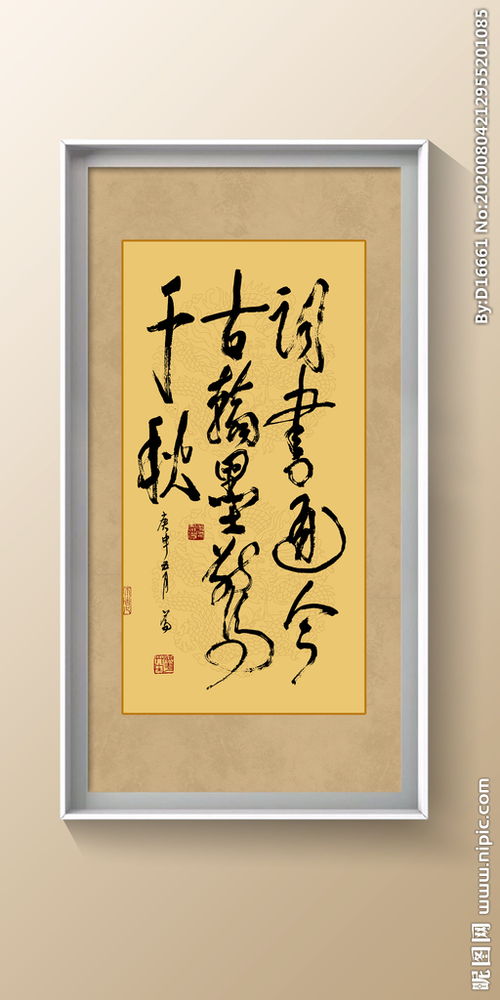 詞書通今
古翰墨驚
千秋
庚申五月
By:D16661 No:20200804212955201085
昵图网 www.nipic.com